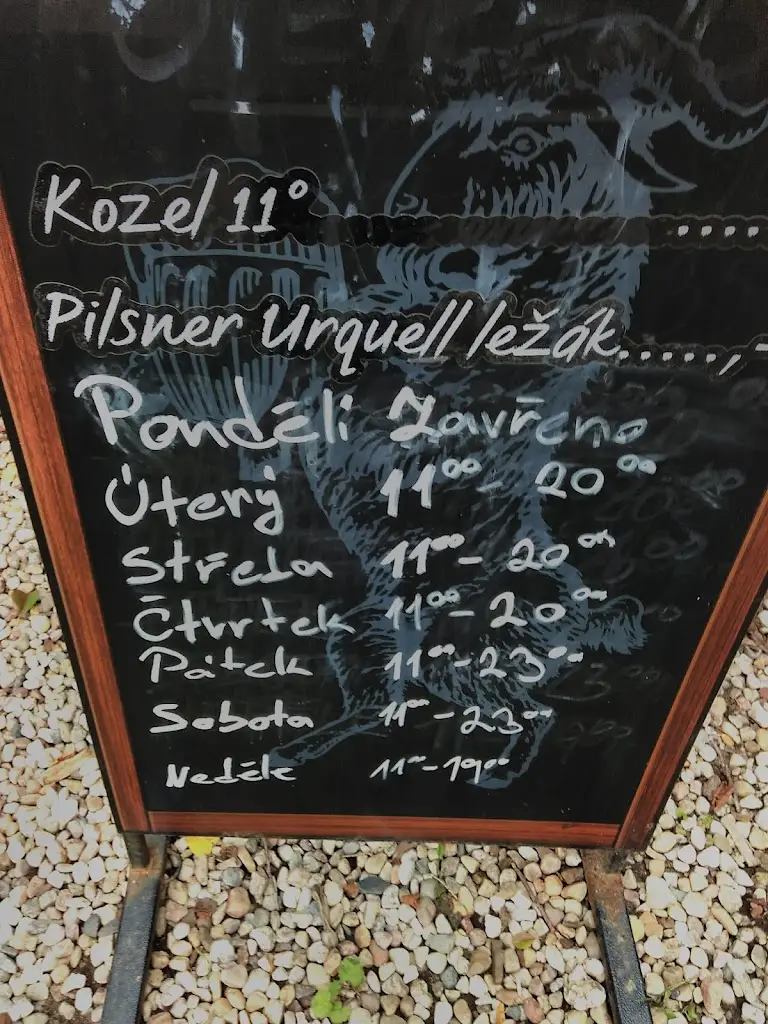 Kozel 11° ....
Pilsner Urquell ležák.....,-
Pondělí Zavřeno
Úterý 11⁰⁰ - 20⁰⁰
Středa 11⁰⁰ - 20⁰⁰
Čtvrtek 11⁰⁰ - 20⁰⁰
Pátek 11⁰⁰ - 23⁰⁰
Sobota 11⁰⁰ - 23⁰⁰
Neděle 11⁰⁰ - 19⁰⁰